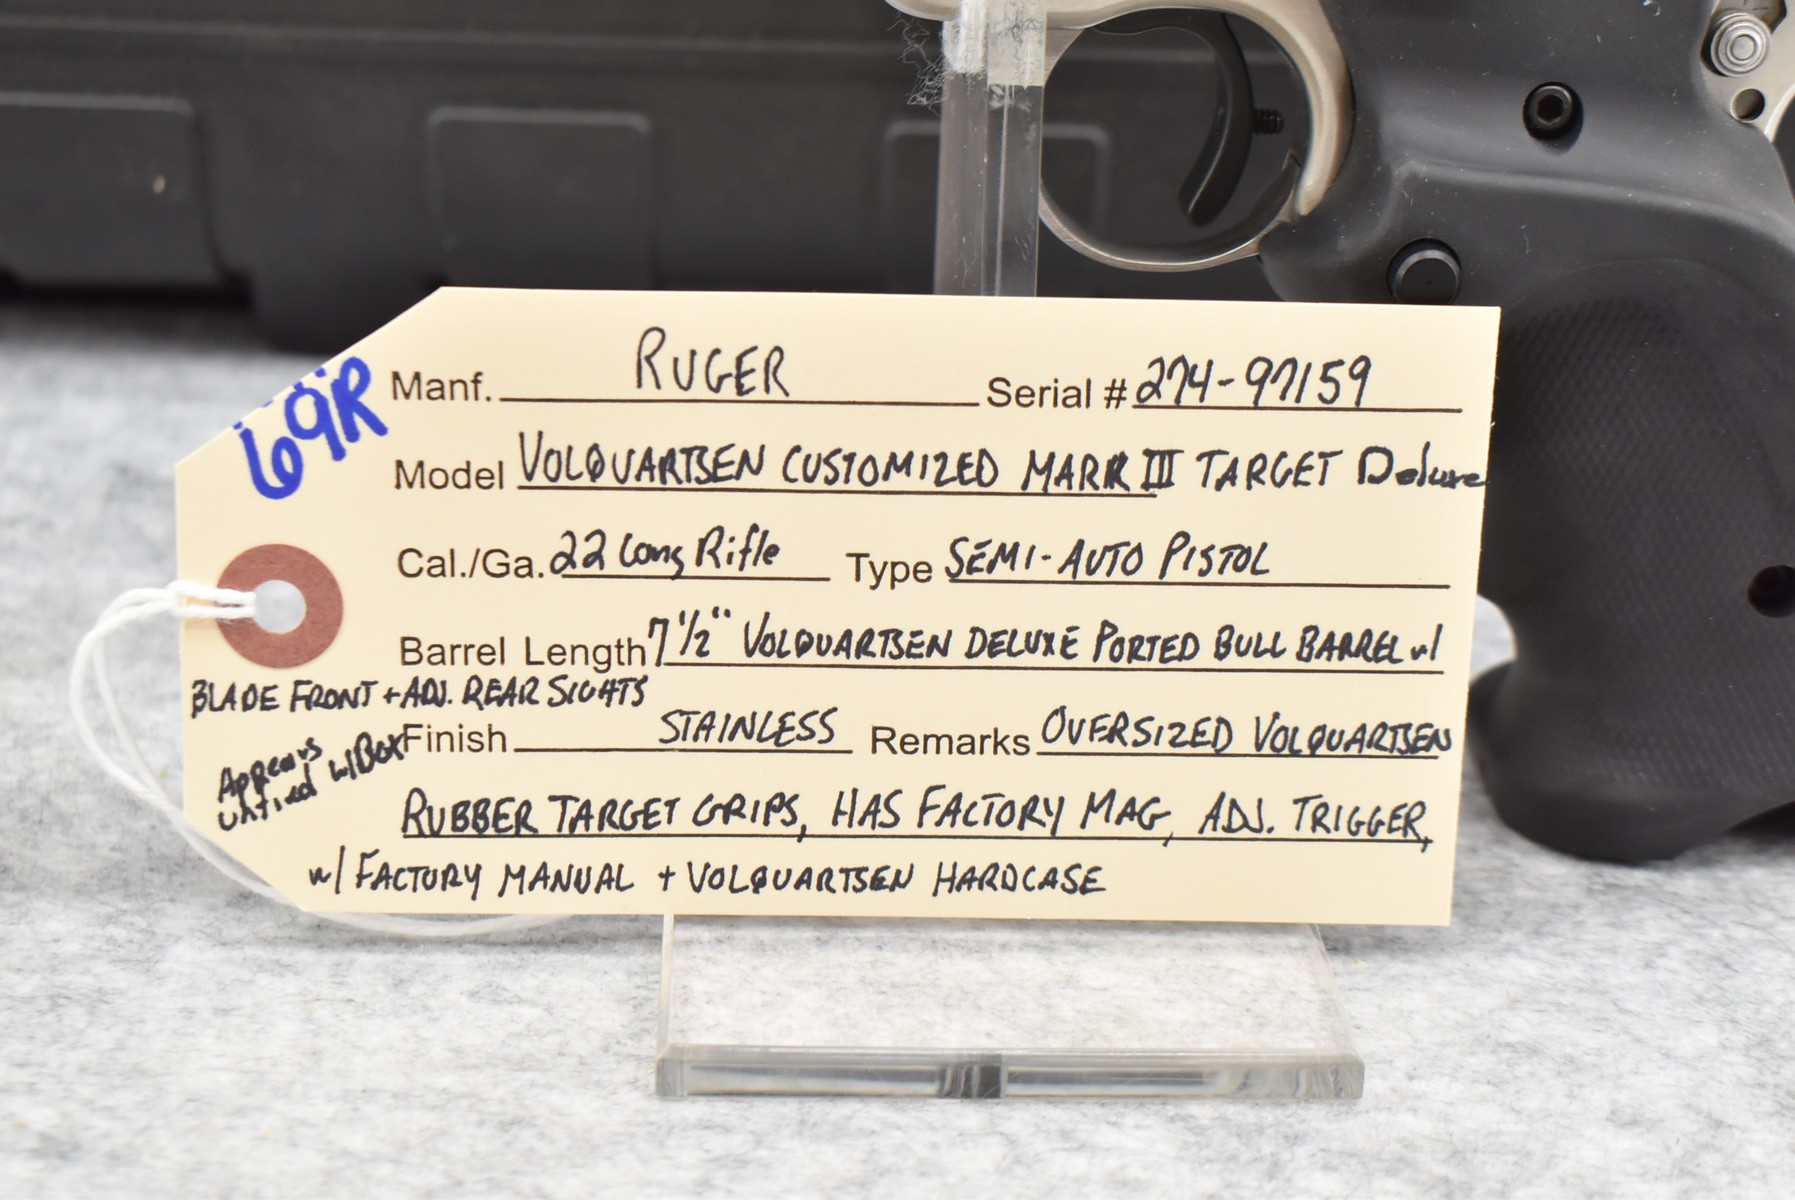 69R
Manf. RUGER Serial # 274-97159
Model VOLQUARTSEN CUSTOMIZED MARK III TARGET Deluxe
Cal./Ga. 22 Long Rifle Type SEMI-AUTO PISTOL
Barrel Length 7 1/2" VOLQUARTSEN DELUXE PORTED BULL BARREL w/
BLADE FRONT + ADJ. REAR SIGHTS
Finish STAINLESS Remarks OVERSIZED VOLQUARTSEN
Appears
unfired w/BOX
RUBBER TARGET GRIPS, HAS FACTORY MAG, ADJ. TRIGGER,
w/ FACTORY MANUAL + VOLQUARTSEN HARDCASE